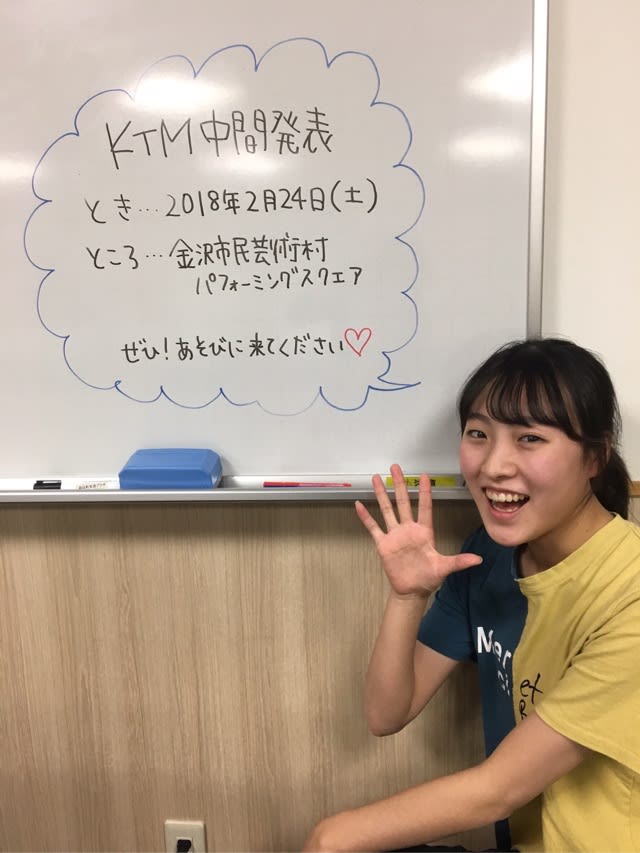 KTM中間発表
とき…2018年2月24日(土)
ところ…金沢市民芸術村
パフォーミングスクエア
ぜひ!あそびに来てください♡